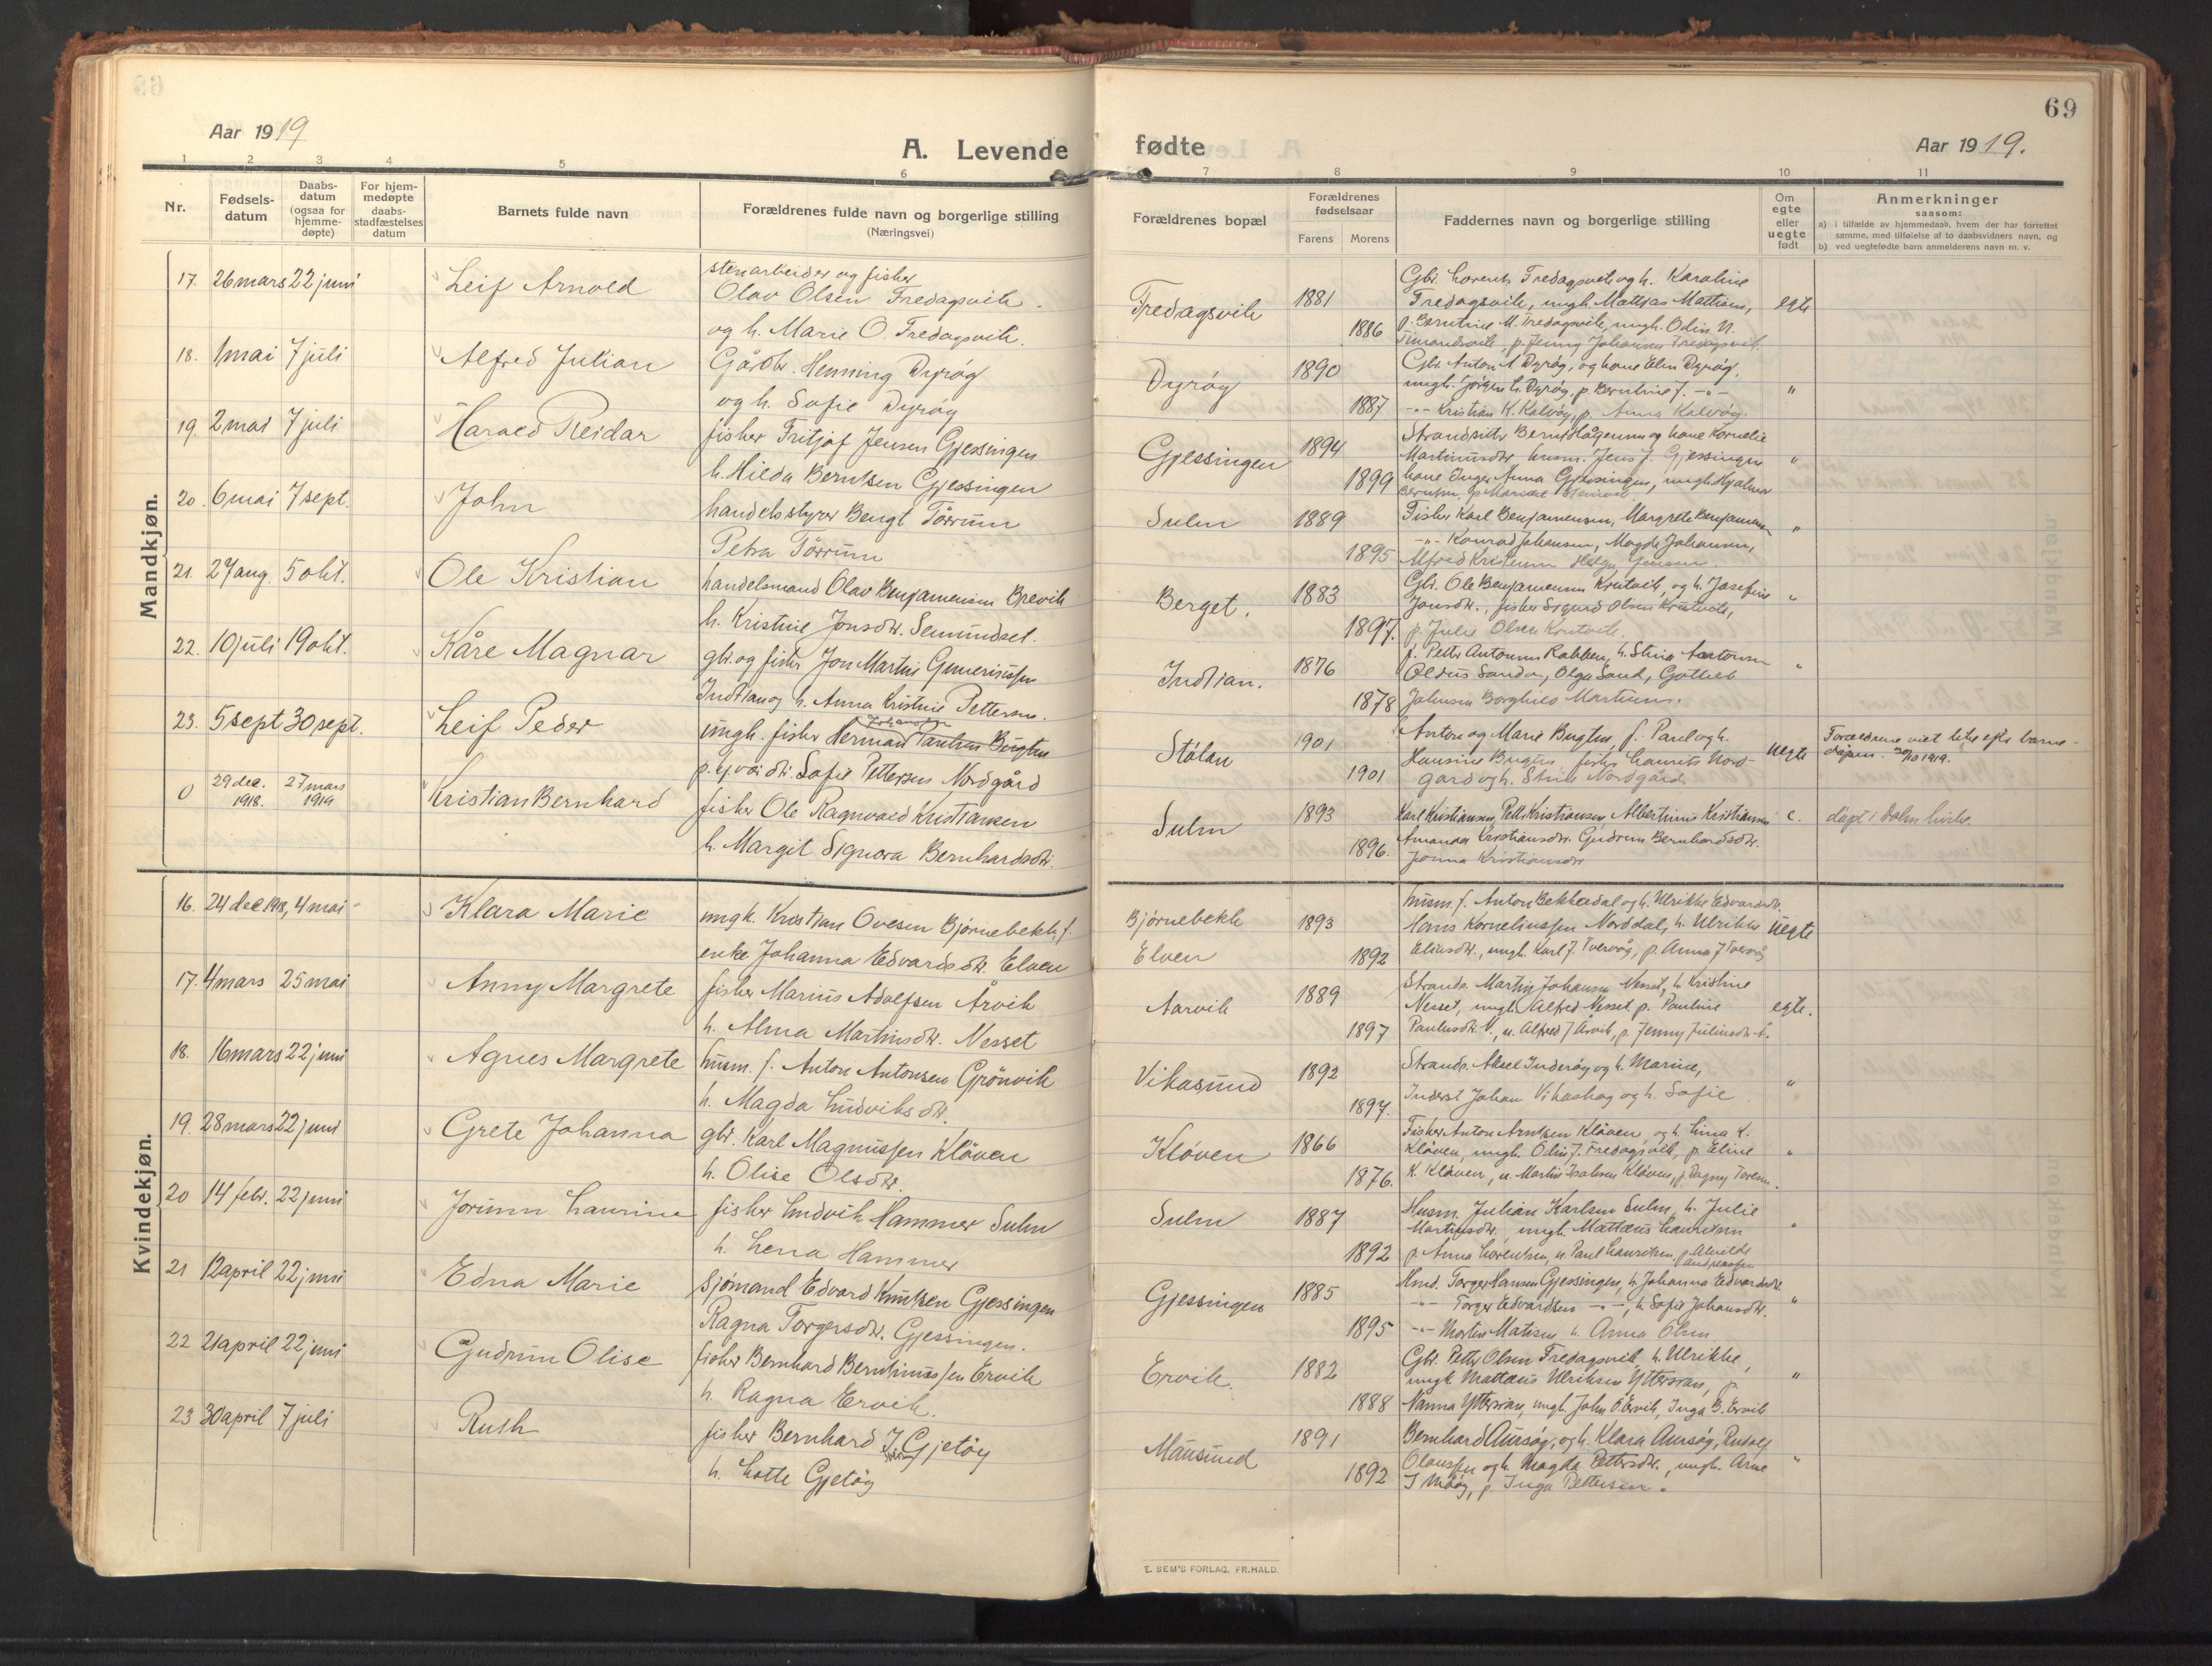 69
Aar 1919
A. Levende fødte
Aar 1919.
1 2 3 4 5 6 7 8 9 10 11
Nr.
Fødsels-
datum
Daabs-
datum
(ogsaa for
hjemme-
døpte)
For hjem-
medøpte
daabs-
stadfæstelses
datum
Barnets fulde navn
Forældrenes fulde navn og borgerlige stilling
(Næringsvei)
Forældrenes bopæl
Forældrenes
fødselsaar
Farens Morens
Faddernes navn og borgerlige stilling
Om
egte
eller
uegte
født
Anmerkninger
saasom:
a) i tilfælde av hjemmedaab, hvem der har forrettet
samme, med tilføielse af to daabsvidners navn, og
b) ved uegtefødte barn anmelderens navn m. v.
Mandkjøn.
17. 26 mars 22 juni Leif Arnold
stenarbeider og fisker
Olav Olsen Fredagsvik
og h. Marie O. Fredagsvik.
Fredagsvik 1881 1886
Gbr. Lorents Fredagsvik og h. Karoline
Fredagsvik, ungk. Mattias Mattisen,
p. Berntine M. Fredagsvik, ungk. Odin N.
p. Jenny Johansen Fredagsvik.
egte
18. 1 mai 7 juli Alfred Julian
Gårdbr. Henning Dyrøy
og h. Sofie Dyrøy
Dyrøy 1890 1887
Gbr. Anton A Dyrøy, og kone Elen Dyrøy,
ungk. Jørgen L. Dyrøy, p. Berntine J. -"-
-"- Kristian K. Kalvøy, p. Anna Kalvøy.
"
19. 2 mai 7 juli Harald Reidar
fisker Fritjof Jensen Gjessingen
h. Hilda Berntsen Gjessingen
Gjessingen 1894 1899
Strandsitter Bernt Hågensen og kone Kornelie
Martinusdtr. husm. Jens J. Gjessingen
kone Inger Anna Gjessingen, ungk. Hjalmar
Berntsen, p.
"
20. 6 mai 7 sept. John
handelsstyrer Bengt Törrum
Petra Törrum
Sulm 1889 1895
Fisker Karl Benjaminsen, Margrete Benjaminsen
-"- Konrad Johansen, Magda Johansen,
Alfred Kristensen Helga Jensen.
"
21. 27 aug. 5 okt. Ole Kristian
handelsmand Olav Benjaminsen Brevik
h. Kristine Jonsdtr. Semundset.
Berget. 1883 1897.
Gbr. Ole Benjaminsen Krutvik, og h. Josefine
Jonsdtr., fisker Sigurd Olsen Krutvik,
p. Julie Olsen Krutvik.
"
22. 10 juli 19 okt. Kåre Magnar
gbr. og fisker Jon Martin Guneriussen
Indtian og h. Anna Kristine Pettersen.
Indtian. 1876 1878
f. Petter Antonsen Rabben, h. Stina Antonsen
Oldus Sandø, Olga Sand, Gotlieb
Johnsen Borghild Martinsen.
"
23. 5 sept 30 sept. Leif Peder
Johansen
ungk. fisker Herman Paulsen Bugten
p. Sofie Pettersen Nordgård
Stölan 1901 1901
Anton og Marie Bugten f. Paul og h.
Hansine Bugten, fisker Laurits Nord-
gård og h. Stine Nordgård.
uegte
Forældrene viet like efter barne-
dåpen. 30/10 1919.
0 29 dec. 1918. 27 mars 1919 Kristian Bernhard
fisker Ole Ragnvald Kristiansen
h. Margit Signora Bernhardsdtr.
Sulm 1893 1896.
Karl Kristiansen, Petter Kristiansen Albertine Kristiansen
Amanda Kristiansdtr. Gudrun Bernhardsdtr.
Jonna Kristiansdtr
e.
døpt i Dolm kirke.
Kvindekjøn.
16. 24 dec 1918, 4 mai Klara Marie
ungk. Kristian Ovesen Bjørnebekk, f.
enke Johanna Edvardsdtr. Elven
Bjørnebekk 1893
Elven 1892
husm. f. Anton Bekkedal og h. Ulrikke Edvardsdtr.
Hans Korneliussen Norddal, h. Ulrikke
Eliasdtr., ungk. Karl J. Tvervåg, p. Anna J Tvervåg
uegte
17. 4 mars 25 mai Anny Margrete
fisker Marius Adolfsen Årvik
h. Alma Martinsdtr. Nesset
Aarvik 1889 1897
Strands. Martin Johansen Nesset, h. Kristine
Nesset, ungk. Alfred Nesset p. Pauline
Paulusdtr. N., u. Alfred J Årvik, p. Jenny Juliusdtr. Å.
egte.
18. 16 mars 22 juni Agnes Margrete
husm. f. Anton Antonsen Grönvik
h. Magda Ludviksdtr.
Vikasund 1892 1897.
Strands. Aksel Inderøy og h. Marine,
Inderst Johan Vikashag og h. Sofie
"
19. 28 mars 22 juni Grete Johanna
gbr. Karl Magnussen Klöven
h. Olise Olsdtr.
Kløven 1866 1876.
Fisker Anton Arntsen Klöven og h. Lina K.
Klöven, ungk. Olin J. Fredagsvik, p. Eline
K. Klöven, u. Martin Isaksen Klöven, p. Dagny Toresen.
"
20 14 febr. 22 juni Jorunn Laurine
fisker Ludvik Hammer Sulm
h. Lena Hammer
Sulm 1887 1892
Husm. Julian Karlsen Sulm, h. Julie
Martinsdtr., ungk. Mattæus Lauritsen
p. Anna Lorentsen, u. Paul Lauritsen, p. Alvilde
Andreassen
"
21 12 april 22 juni Edna Marie
sjömand Edvard Knutsen Gjessingen
Ragna Torgersdtr. Gjessingen.
Gjessingen 1885 1895
Hmd. Torger Hansen Gjessingen, h. Johanna Edvardsdtr.
-"- Torger Edvardsen -"-, h. Sofie Johansdtr.
-"- Morten Matisen h. Anna Olsen
"
22 21 april 22 juni Gudrun Olise
fisker Bernhard Berntinussen Ervik
h. Ragna Ervik.
Ervik. 1882 1888
Gbr. Petter Olsen Fredagsvik, h. Ulrikke,
ungk. Mattæus Ulriksen Ytterian, p.
Nanna Ytterian, ungk. John O. Ervik, Inga B. Ervik
"
23 30 april 7 juli Ruth
fisker Bernhard J. Gjetøy
h. Lotte Gjetøy
Mausund 1891 1892
Bernhard Aursøy, og h. Klara Aursøy, Rudolf
Olaussen og h. Magda Pettersdtr., ungk. Arne
J. p. Inga Pettersen.
"
E. SEM'S FORLAG, FR.HALD.